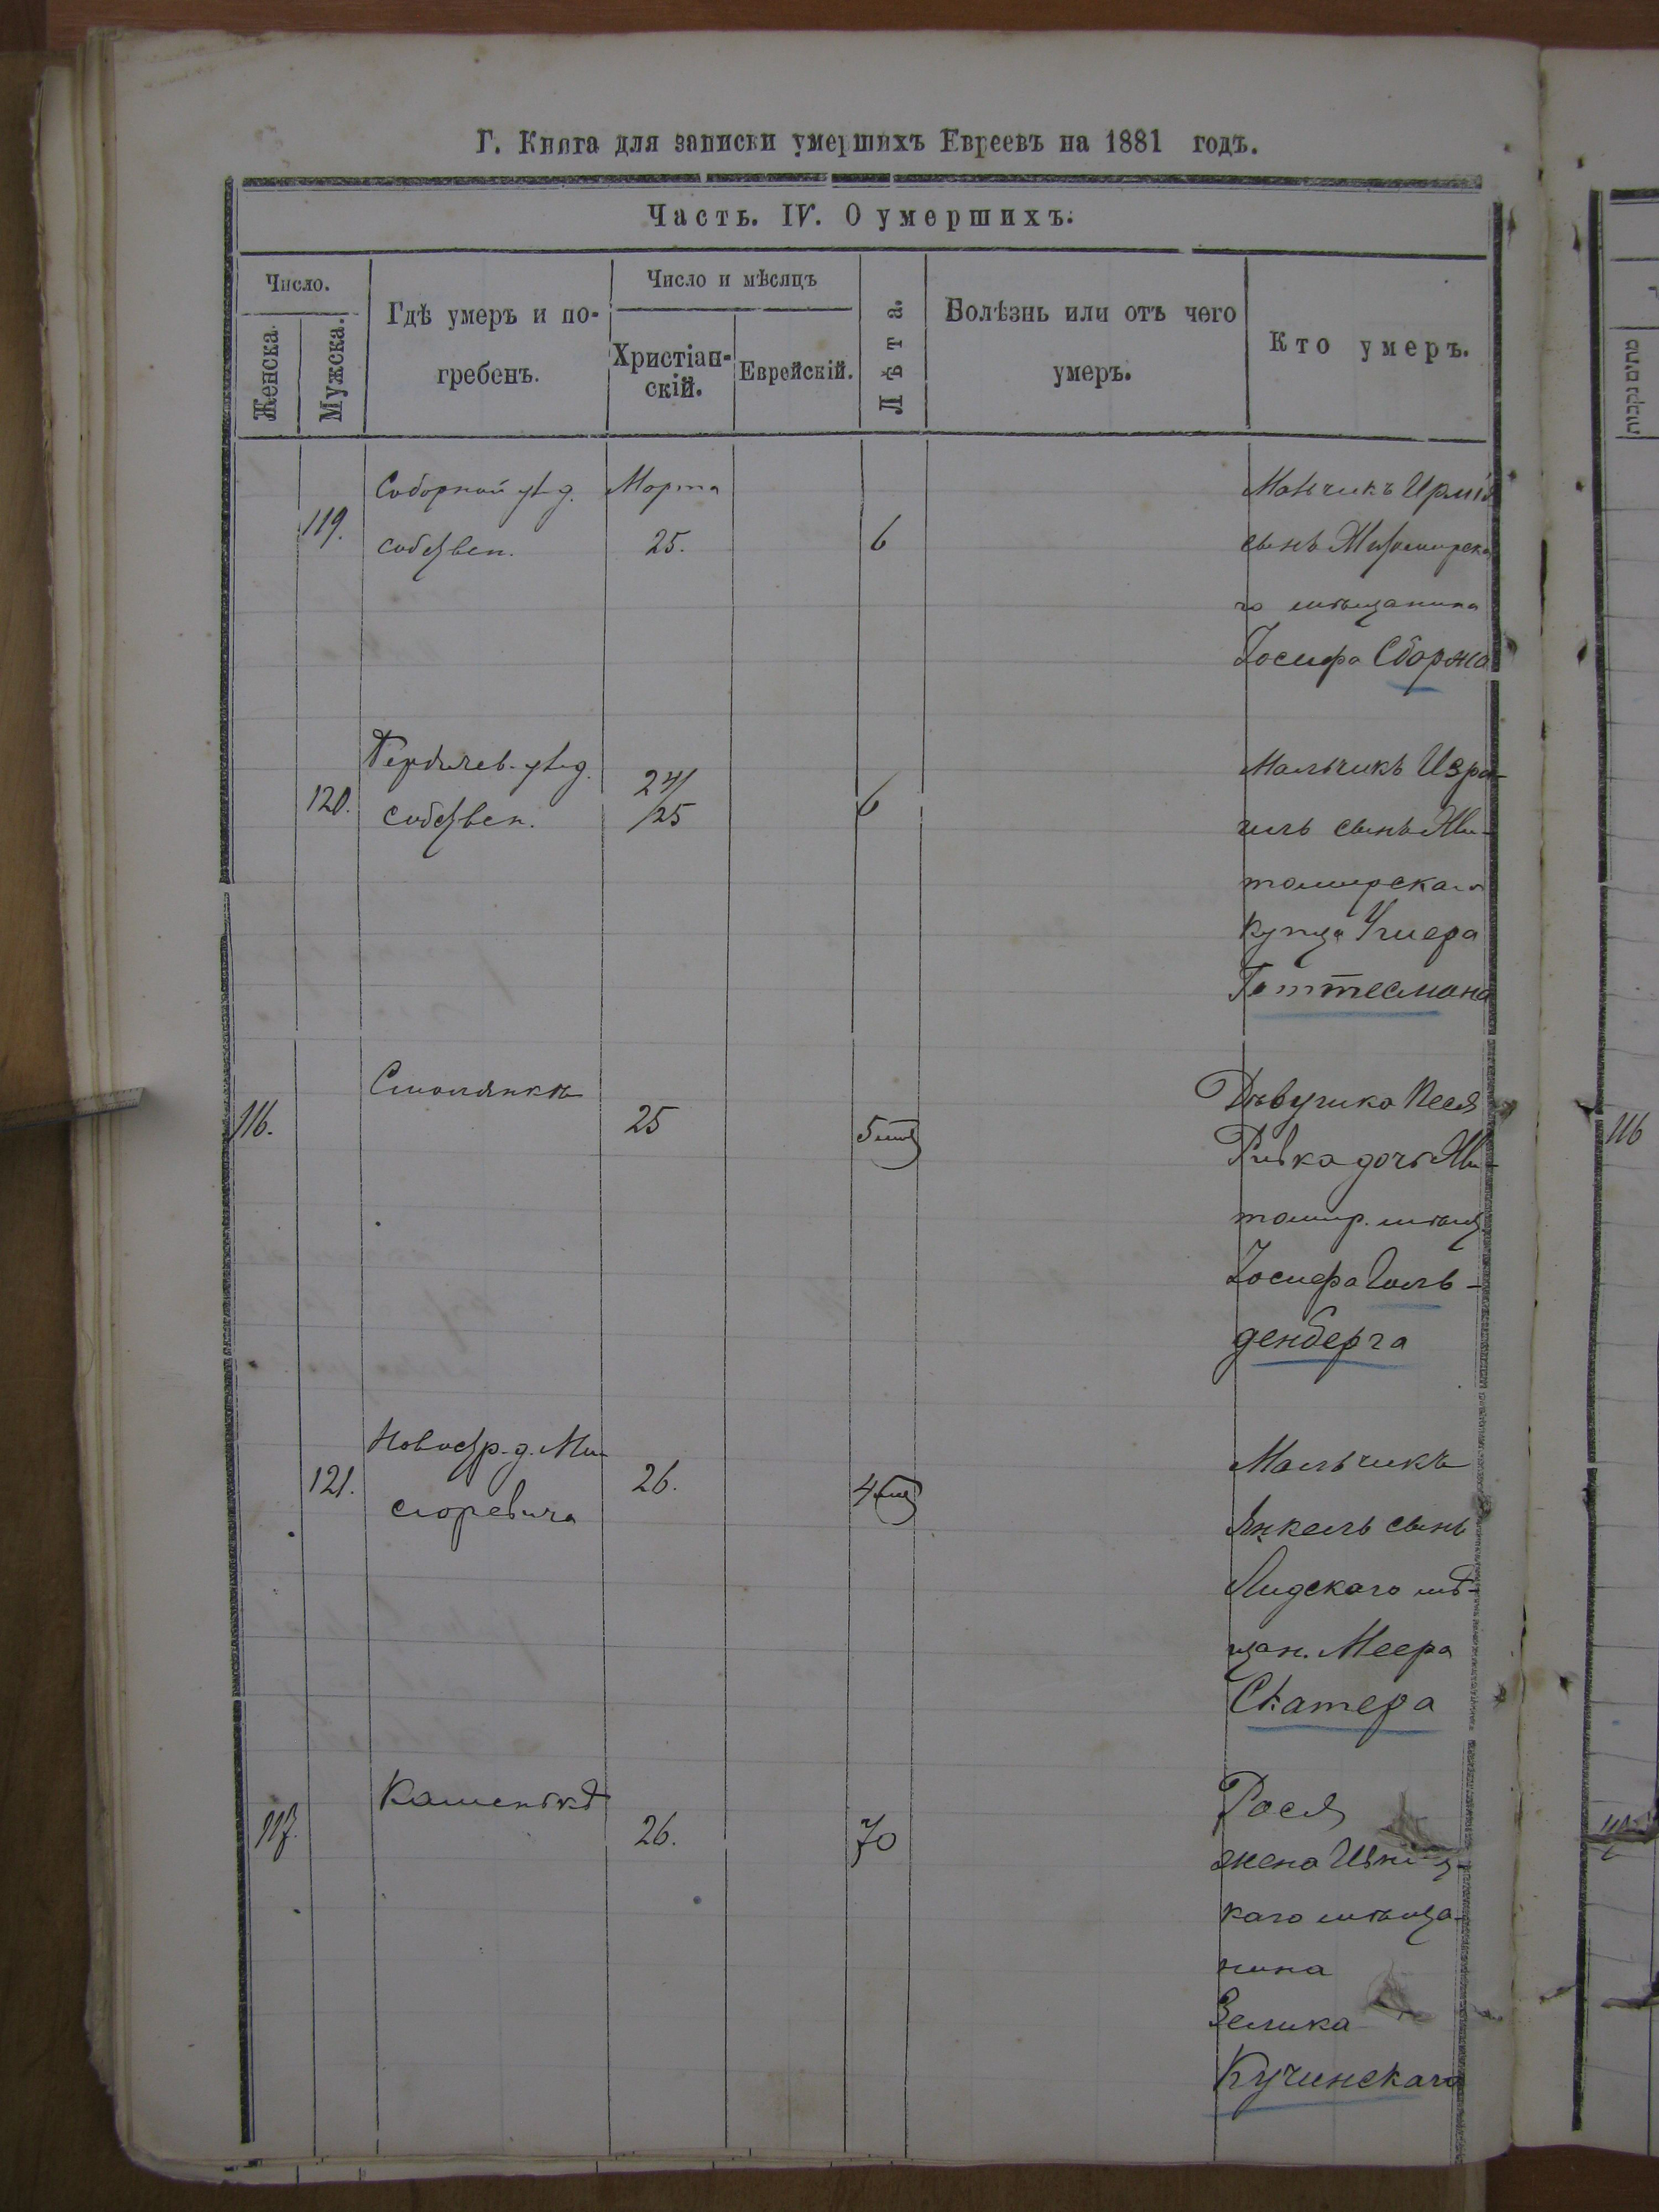 Г. Книга для записки умершихъ Евреевъ на 1881 годъ.
Часть. IV. О умершихъ.
Число.
Женска.
Мужска.
Гдѣ умеръ и по-
гребенъ.
Число и мѣсяцъ
Христіан-
скій.
Еврейскій.
Лѣта.
Болѣзнь или отъ чего
умеръ.
Кто умеръ.
119.
Соборной ул. д.
собствен.
Марта
25.
6
Мальчикъ
сынъ Житомирска
го мѣщанина
Іосифа Сборжа
120.
Бердичев. ул. д.
собствен.
24/
/25
6
Мальчикъ Изра-
иль сынъ Жи-
томирскаго
купца
Готтесмана
116.
Смолянкѣ
25
5 мѣс
Дѣвушка Песя
Ривка дочь Жи-
томир. мѣщ.
Іосифа Голь-
денберга
121.
26.
Мальчикъ
Янкель сынъ
Лидскаго мѣ-
щан. Меера
Скатера
117.
Каменькѣ
26.
70
Рося
жена
каго мѣща-
нина
Зелика
Кучинскаго
מתים נקבות
116